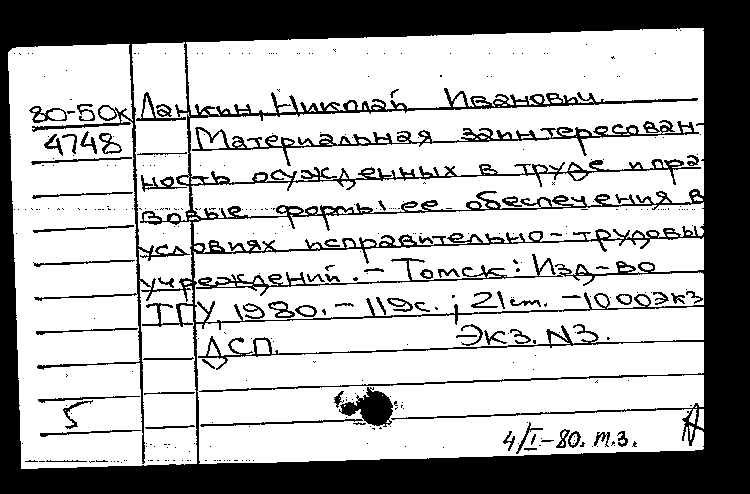 80-50к Ланкин, Николай Иванович.
4748 Материальная заинтересован-
ность осужденных в труде и пра-
вовые формы ее обеспечения в
условиях исправительно-трудовы
учреждений. - Томск: Изд-во
ТГУ, 1980. - 119с. ; 21 см. - 1000экз
ДСП. Экз. N3.
5
4/I-80. т.з.